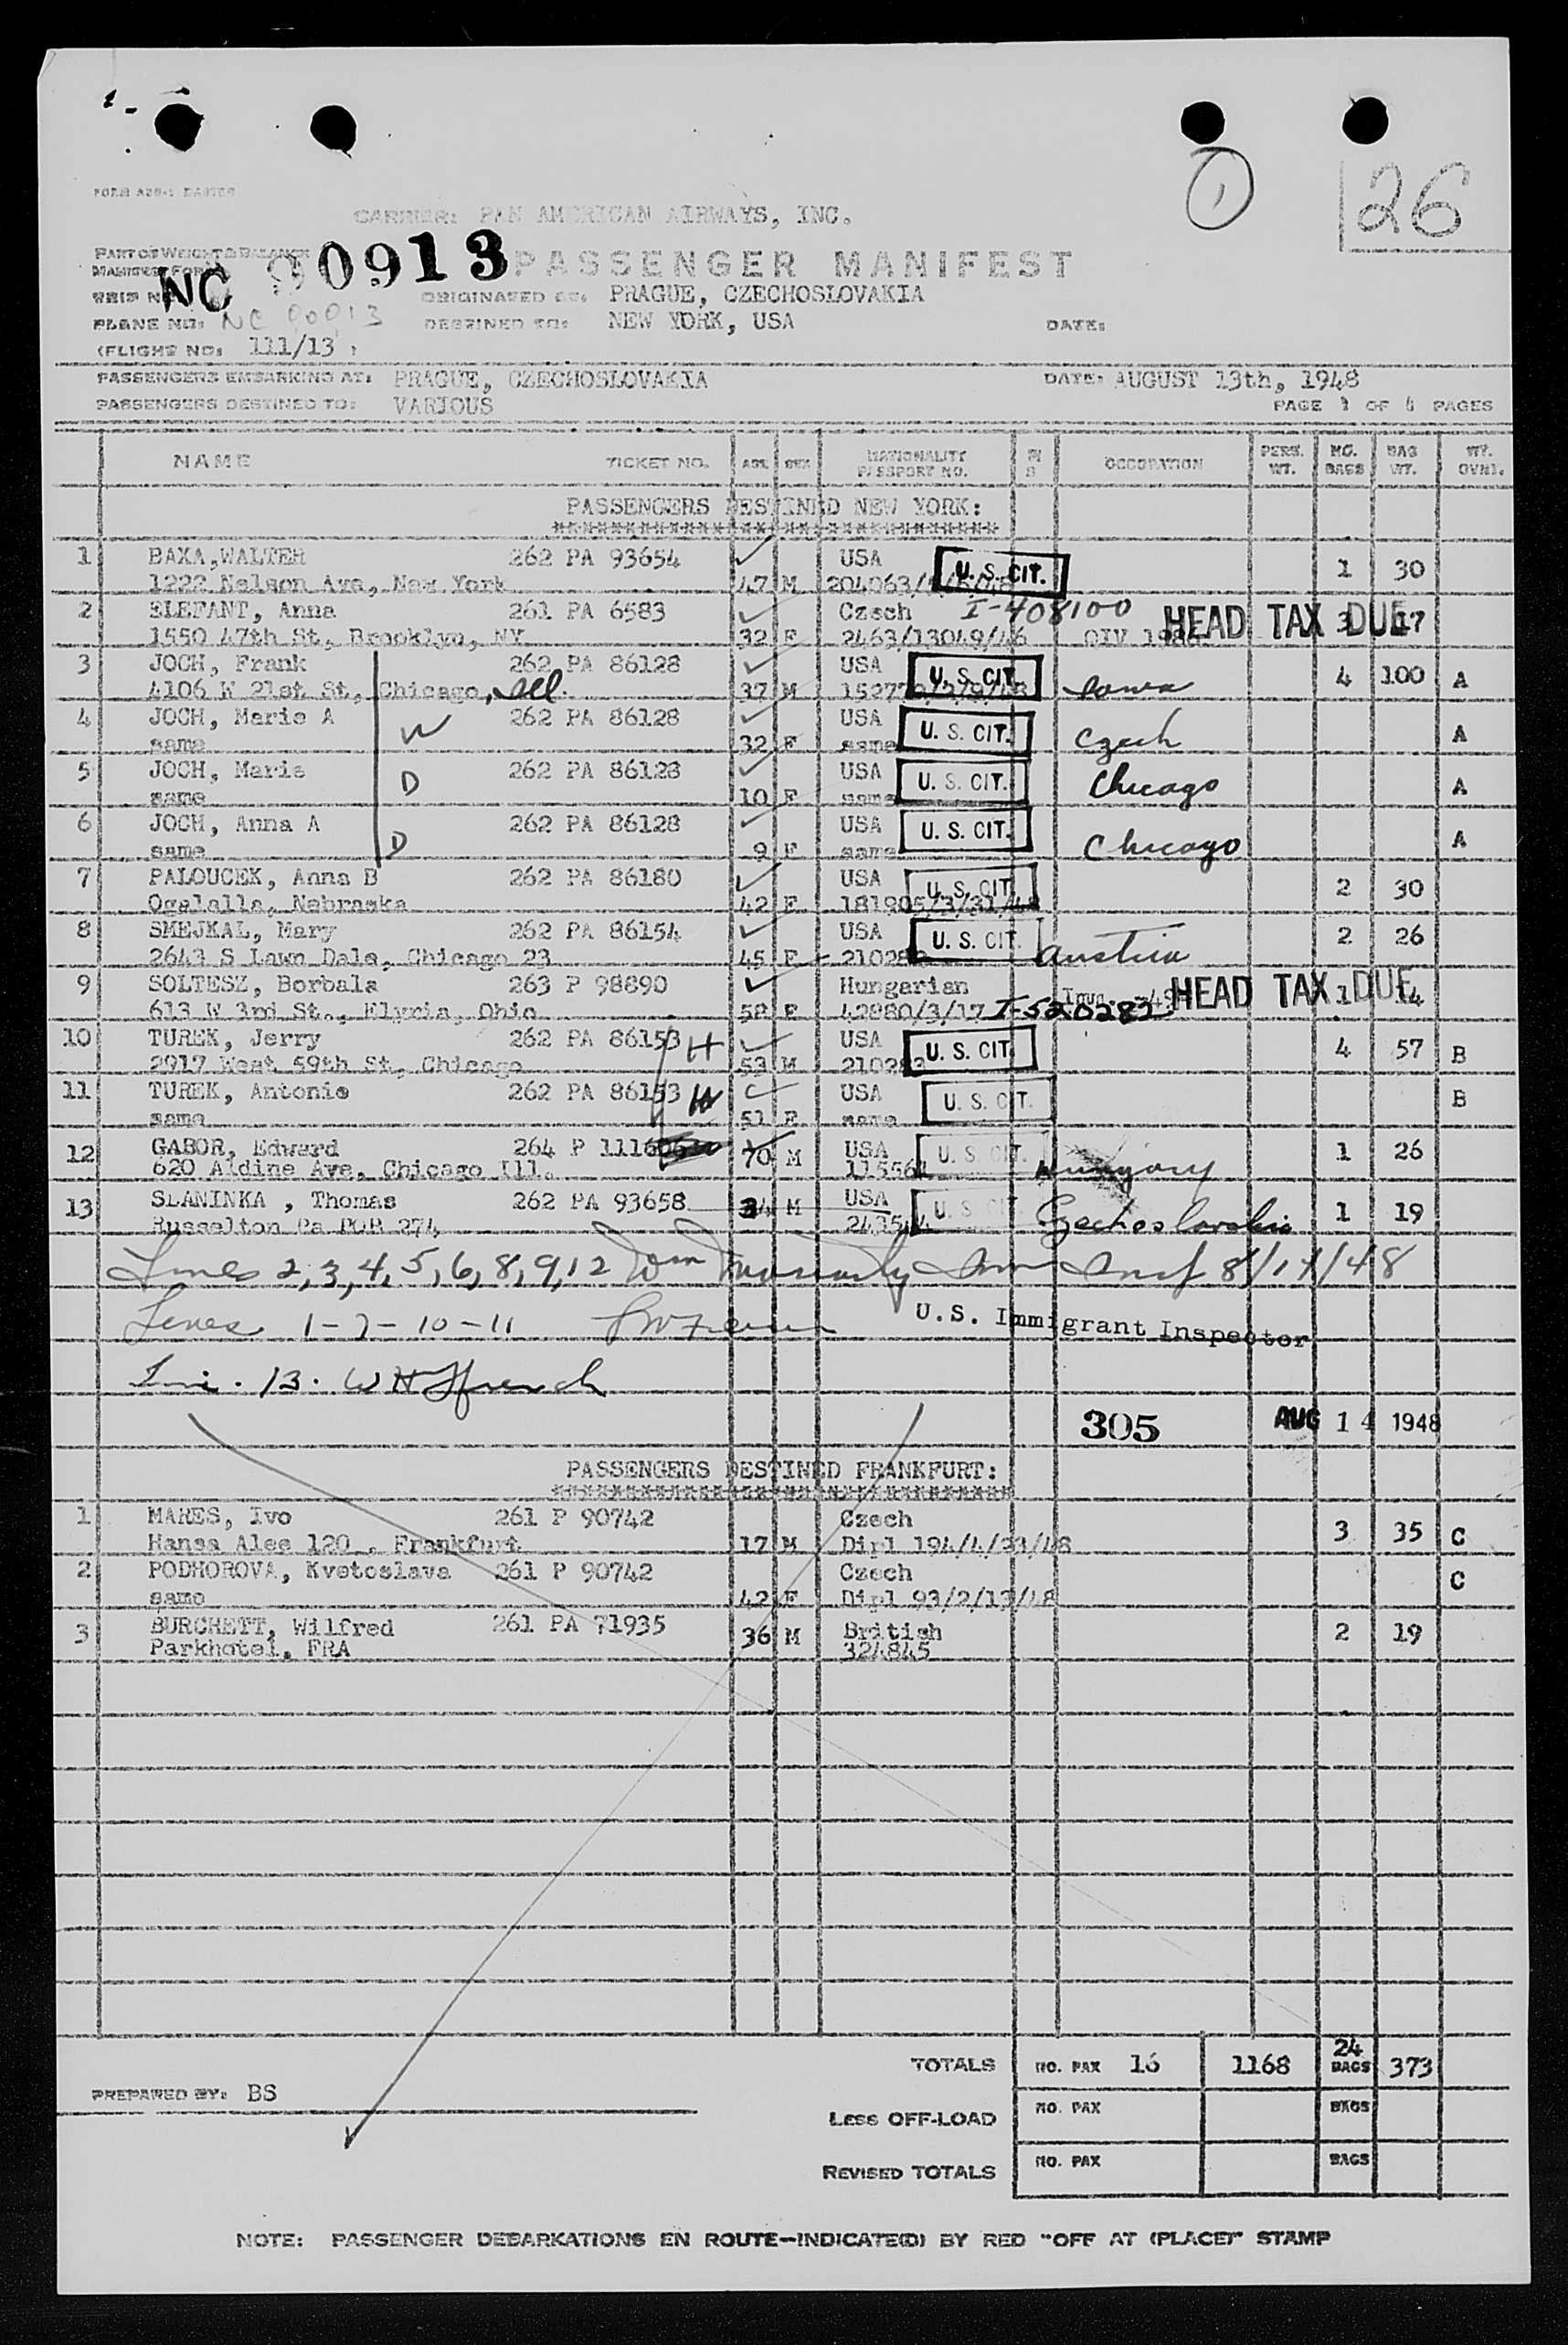 1
26
FORM ADS-1 MASTER
CARRIER: PAN AMERICAN AIRWAYS, INC.
PART OF WEIGHT & BALANCE
MANIFEST FORM
NC 90913 PASSENGER MANIFEST
TRIP NO. ORIGINATED AT: PRAGUE, CZECHOSLOVAKIA
PLANE NO: NC 90913 DESTINED TO: NEW YORK, USA DATE:
(FLIGHT NO: 111/13 )
PASSENGERS EMBARKING AT: PRAGUE, CZECHOSLOVAKIA DATE: AUGUST 13th, 1948
PASSENGERS DESTINED TO: VARIOUS PAGE 1 OF PAGES
NAME TICKET NO. AGE SEX NATIONALITY PASSPORT NO. OCCUPATION PERS. WT. NO. BAGS BAG WT.
PASSENGERS DESTINED NEW YORK:
1 BAXA,WALTER 262 PA 93654 USA U. S. CIT. 1 30
1222 Nelson Ave, New York 47 M
2 ELEFANT, Anna 261 PA 6583 Czech I-408100 HEAD TAX DUE 3 17
1550 47th St, Brooklyn, NY 32 F 2463/13049/46 QIV
3 JOCH, Frank 262 PA 86128 USA U. S. CIT. 4 100 A
4106 W 21st St, Chicago, Ill. 37 M Iowa
4 JOCH, Marie A W 262 PA 86128 USA U. S. CIT. Czech A
same 32 F same
5 JOCH, Marie D 262 PA 86128 USA U. S. CIT. Chicago A
same 10 F same
6 JOCH, Anna A D 262 PA 86128 USA U. S. CIT. Chicago A
same 9 F same
7 PALOUCEK, Anna B 262 PA 86180 USA U. S. CIT. 2 30
Ogalalla, Nebraska 42 F 181905/3/31/48
8 SMEJKAL, Mary 262 PA 86154 USA U. S. CIT. Austria 2 26
2643 S Lawn Dale, Chicago 23 45 F
9 SOLTESZ, Borbala 263 P 98890 Hungarian HEAD TAX DUE 1 14
613 W 3rd St., Elyria, Ohio 58 F 42880/3/17 I-520282
10 TUREK, Jerry 262 PA 86153 H USA U. S. CIT. 4 57 B
2917 West 59th St, Chicago 53 M 210283
11 TUREK, Antonie 262 PA 86153 W USA U. S. CIT. B
same 51 F same
12 GABOR, Edward 264 P 70 M USA U. S. CIT. Hungary 1 26
620 Aldine Ave, Chicago Ill. 115564
13 SLANINKA , Thomas 262 PA 93658 M USA U. S. Czechoslovakia 1 19
Russelton Pa POB 274
Lines 2,3,4,5,6,8,9,12 Imm Insp 8/14/48
Lines 1-7-10-11 U.S. Immigrant Inspector
Line 13. W H French
305 AUG 14 1948
PASSENGERS DESTINED FRANKFURT:
1 MARES, Ivo 261 P 90742 Czech 3 35 C
Hansa Alee 120 , Frankfurt 17 M Dipl 194/4/23/48
2 PODHOROVA, Kvetoslava 261 P 90742 Czech C
same 42 F Dipl 93/2/13/48
3 BURCHETT, Wilfred 261 PA 71935 36 M British 2 19
Parkhotel, FRA 324845
TOTALS NO. PAX 16 1168 24 BAGS 373
PREPARED BY: BS
LESS OFF-LOAD NO. PAX BAGS
REVISED TOTALS NO. PAX BAGS
NOTE: PASSENGER DEBARKATIONS EN ROUTE—INDICATE(D) BY RED "OFF AT (PLACE)" STAMP